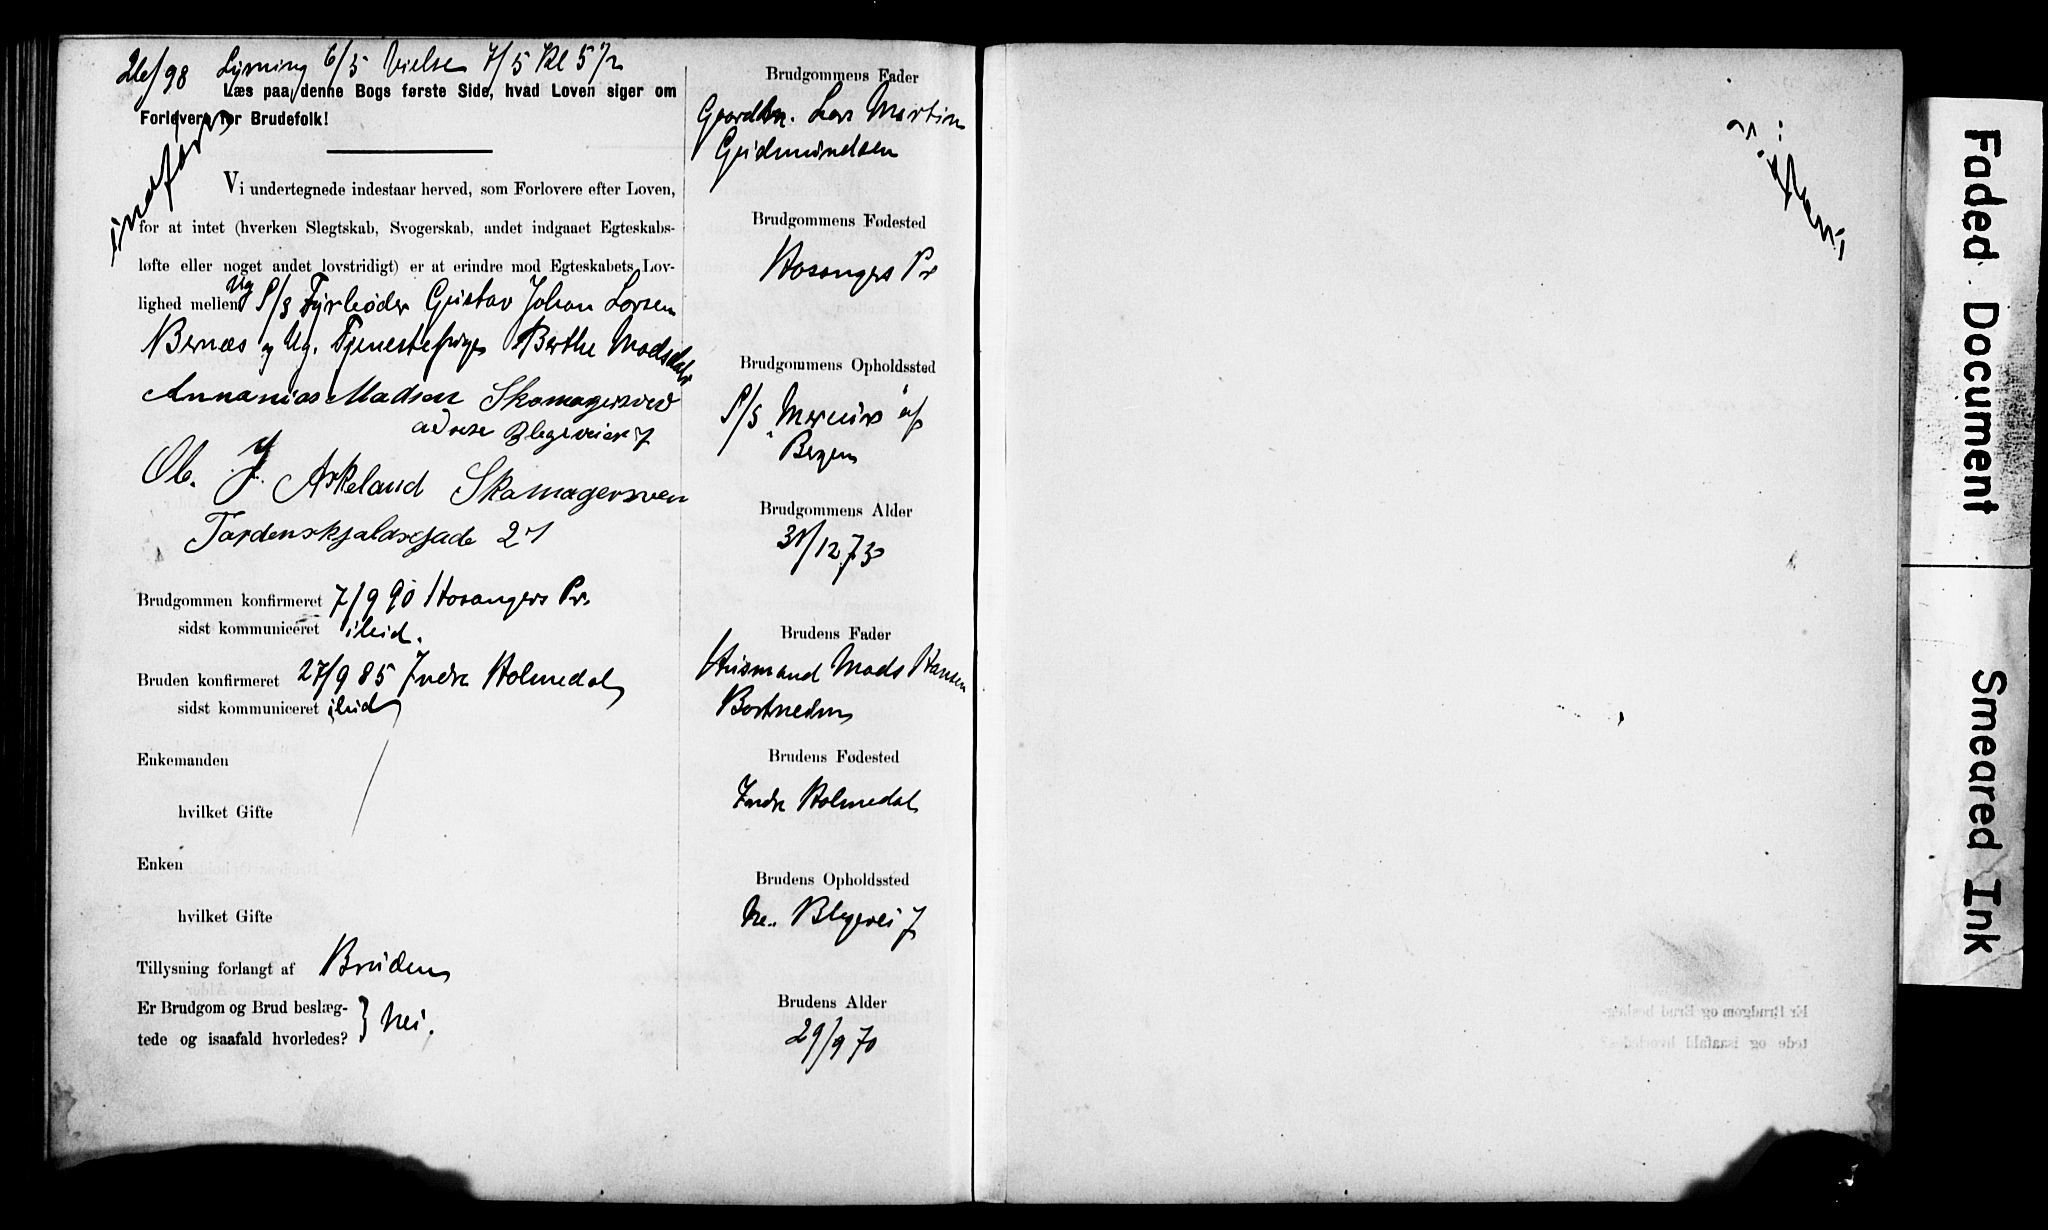 26/98 Lysning 6/5 Vielse 7/5 Kl 5 1/2
Læs paa denne Bogs første Side, hvad Loven siger om
Forlovere for Brudefolk!
indført
Vi undertegnede indestaar herved, som Forlovere efter Loven,
for at intet (hverken Slegtskab, Svogerskab, andet indgaaet Egteskabs-
løfte eller noget andet lovstridigt) er at erindre mod Egteskabets Lov-
lighed mellem Ug S/S Fyrbøder Gustav Johan Larsen
Bernæs og Ug. Tjenestepige Berthe Madsdtr
Annanias Madsen Skomagersvend
adrese Blegeveien 7
Ol. J. Askeland Skomagersven
Tordenskjoldsgade 21
Brudgommen konfirmeret 7/9 90 Hosangers Pr.
sidst kommuniceret ibid.
Bruden konfirmeret 27/9 85 Indre Holmedal
sidst kommuniceret ibid
Enkemanden
hvilket Gifte
Enken
hvilket Gifte
Tillysning forlangt af Bruden
Er Brudgom og Brud beslæg-
tede og isaafald hvorledes? } Nei.
Brudgommens Fader
Gaardbr. Lars Martin
Gudmundsen
Brudgommens Fødested
Hosangers Pr
Brudgommens Opholdssted
S/S „Mercur“ af
Bergen
Brudgommens Alder
31/12 73
Brudens Fader
Husmand Mads Hansen
Bortneden
Brudens Fødested
Indre Holmedal
Brudens Opholdssted
Ne. Blegevei 7
Brudens Alder
29/9 70
Er Brudgom og Brud beslæg-
tede og isaafald hvorledes?
Faded Document
Smeared Ink